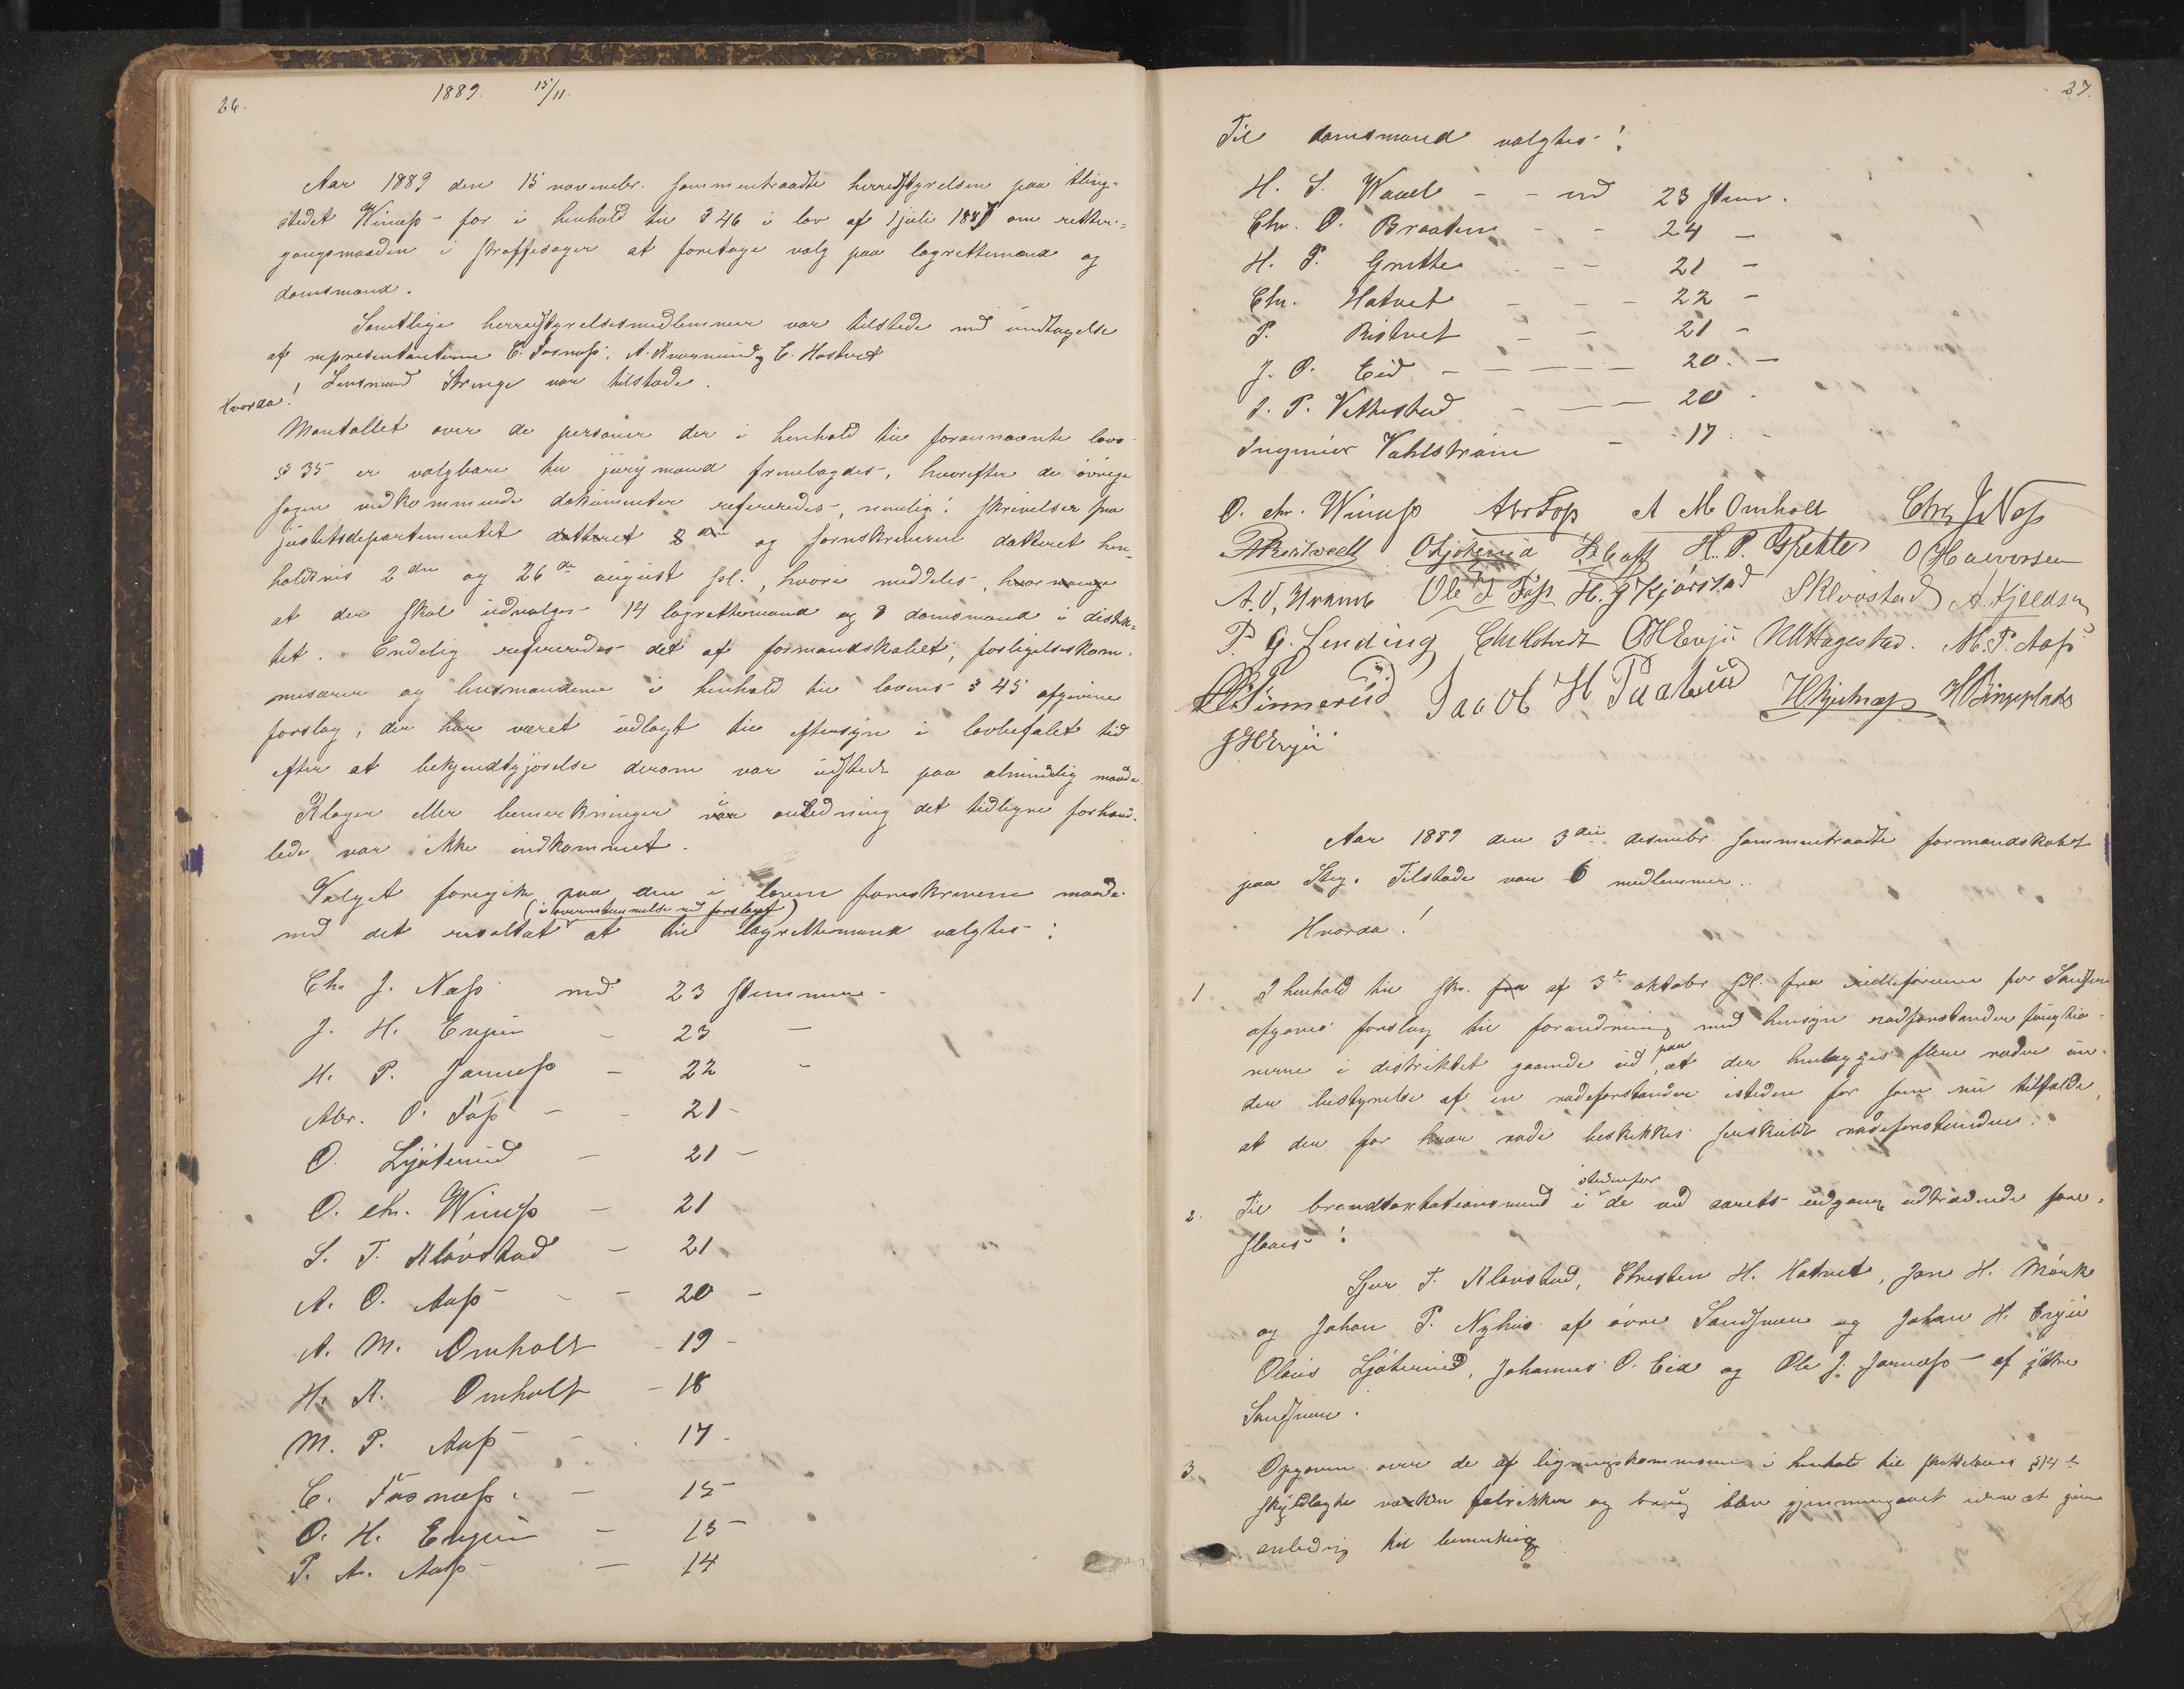 26.
1889. 15/11.
Aar 1889 den 15 novembr. sammentraadte herredstyrelsen paa thing-
stedet Winæss for i henhold til § 46 i lov af 1 juli 1887 om retter-
gangsmaaden i straffesager at foretage valg paa lagrettemænd og
domsmænd.
Samtlige herredstyrelsesmedlemmer var tilstede med undtagelse
af repræsentanterne C. Tosnæss, A. og C. Hostvet
Lensmand var tilstede.
Hvorda!
Mantallet over de personer der i henhold til forannævnte lovs
§ 35 er valgbare til jurymænd fremlagdes, hvorefter de øvrige
sagen vedkommende dokumenter refereredes, nemlig: skrivelser fra
justitsdepartementet datteret 2den og sorenskriveren datteret hen-
holdsvis 2den og 26de august sl., hvori meddeles, hvor mange
at der skal udvælges 14 lagrettemænd og 8 domsmænd i distrik-
tet. Endelig refereredes det af formandskabet, forligelseskom-
misærer og husmændene i henhold til lovens § 45 afgivne
forslag, der har været udlagt til eftersyn i lovbefalet tid
efter at bekjendtgjørelse derom var udstedt paa almindelig maade.
Klager eller bemerkninger var anledning det tidligere forhand-
lede var ikke indkommet.
Valget foregik paa den i loven foreskrevne maade
(i overensstemmelse med forslaget)
med det resultat at til lagrettemænd valgtes:
Chr. J. Næss med 23 stemmer
J. H. Evju – 23 –
H. P. Jarnæss – 22 –
Abr. O. Foss – – 21 –
O. Ljøterud – 21 –
O. Chr. Winæss – 21
S. T. Kløvstad – 21
A. O. Aass – – 20 –
A. M. Omholt – 19 –
H. K. Omholt – 18
M. P. Aass – 17
C. Tosnæss – 15
O. H. Evju – 15
P. A. Aass – 14
27.
Til domsmænd valgtes:
H. S. Waael – – med 23 stem.
Chr. O. Braaten – – 24 –
H. P. Grette – – 21 –
Chr. Hatvet – – – 22 –
P. Ristvet – – 21 –
J. O. Eid – – – – 20 –
S. P. Vettestad – – – 20
Ingeniør Vahlstrøm – 17 –
O. chr. Winæss Abr Foss A M Omholt Chr J Næss
H. P. Grette O Halvorsen
Ole T Foss H. J Kjørstad S Kløvstad A. Kjeldsen
P. G. Lending O H Evju N Hagestad. M. P. Aass
Jacob H
J H Evju
Aar 1889 den 3die desembr. sammentraadte formandskabet
paa Steg. Tilstede var 6 medlemmer.
Hvorda!
1 I henhold til skr. fra af 3die oktobr sl. fra for Sandsvær
afgaves forslag til forandring med hensyn rodforstander fungtio-
nerne i distriktet gaaende ud paa, at der henlægges flere roder un-
der bestyrelse af en rodeforstander istedenfor som nu tilfældet,
at der for hver rode beskikkes særskildt rodeforstander.
2. Til brandtaxtationsmænd i stedenfor de ved aarets udgang udtrædende fore-
slaaes:
Sjur T. Kløvstad, Christen H. Hatvet, Jon H. Mørk
og Johan P. Nyhus af øvre Sandsvær og Johan H. Evju
Olaus Ljøterud, Johannes O. Eid og Ole J. Jarnæss af ytre
Sandsvær.
3. Opgaven over de af ligningskommisionen i henhold til skattelovens § 14
skyldlagte værker fabrikker og brug blev gjennemgaaet uden at give
anledning til bemerkning.